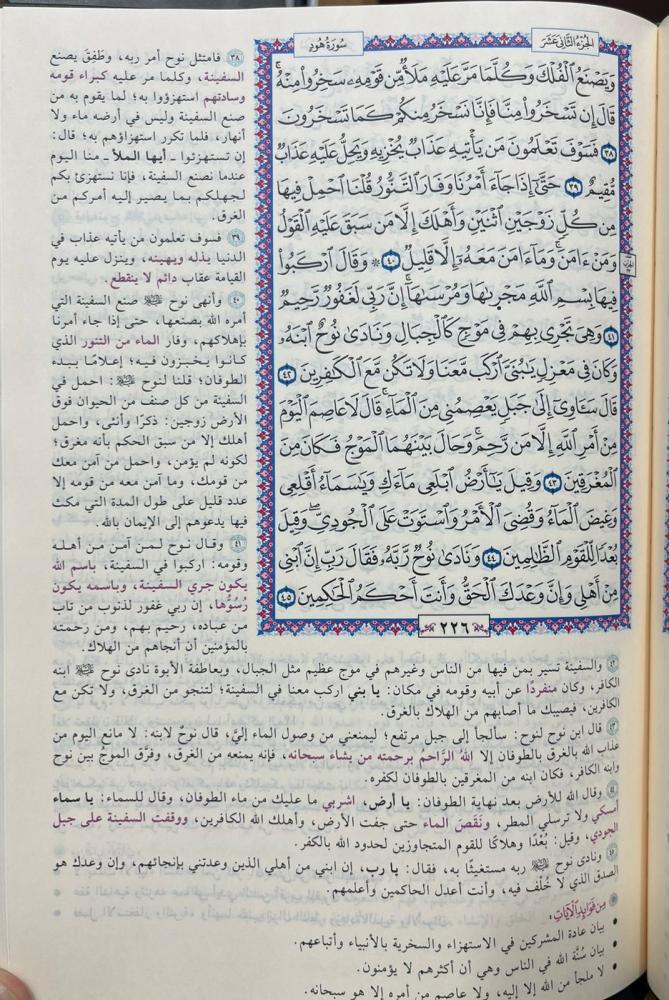 الجزء الثاني عشر
سورة هود
وَيَصْنَعُ ٱلْفُلْكَ وَكُلَّمَا مَرَّ عَلَيْهِ مَلَأٌ مِّن قَوْمِهِۦ سَخِرُوا۟ مِنْهُ ۚ
قَالَ إِن تَسْخَرُوا۟ مِنَّا فَإِنَّا نَسْخَرُ مِنكُمْ كَمَا تَسْخَرُونَ
٣٨ فَسَوْفَ تَعْلَمُونَ مَن يَأْتِيهِ عَذَابٌ يُخْزِيهِ وَيَحِلُّ عَلَيْهِ عَذَابٌ
مُّقِيمٌ ٣٩ حَتَّىٰٓ إِذَا جَآءَ أَمْرُنَا وَفَارَ ٱلتَّنُّورُ قُلْنَا ٱحْمِلْ فِيهَا
مِن كُلٍّ زَوْجَيْنِ ٱثْنَيْنِ وَأَهْلَكَ إِلَّا مَن سَبَقَ عَلَيْهِ ٱلْقَوْلُ
وَمَنْ ءَامَنَ ۚ وَمَآ ءَامَنَ مَعَهُۥٓ إِلَّا قَلِيلٌ ٤٠ ۞ وَقَالَ ٱرْكَبُوا۟
فِيهَا بِسْمِ ٱللَّهِ مَجْر۪ىٰهَا وَمُرْسَىٰهَآ ۚ إِنَّ رَبِّى لَغَفُورٌ رَّحِيمٌ
٤١ وَهِىَ تَجْرِى بِهِمْ فِى مَوْجٍ كَٱلْجِبَالِ وَنَادَىٰ نُوحٌ ٱبْنَهُۥ
وَكَانَ فِى مَعْزِلٍ يَـٰبُنَىَّ ٱرْكَب مَّعَنَا وَلَا تَكُن مَّعَ ٱلْكَـٰفِرِينَ ٤٢
قَالَ سَـَٔاوِىٓ إِلَىٰ جَبَلٍ يَعْصِمُنِى مِنَ ٱلْمَآءِ ۚ قَالَ لَا عَاصِمَ ٱلْيَوْمَ
مِنْ أَمْرِ ٱللَّهِ إِلَّا مَن رَّحِمَ ۚ وَحَالَ بَيْنَهُمَا ٱلْمَوْجُ فَكَانَ مِنَ
ٱلْمُغْرَقِينَ ٤٣ وَقِيلَ يَـٰٓأَرْضُ ٱبْلَعِى مَآءَكِ وَيَـٰسَمَآءُ أَقْلِعِى
وَغِيضَ ٱلْمَآءُ وَقُضِىَ ٱلْأَمْرُ وَٱسْتَوَتْ عَلَى ٱلْجُودِىِّ ۖ وَقِيلَ
بُعْدًا لِّلْقَوْمِ ٱلظَّـٰلِمِينَ ٤٤ وَنَادَىٰ نُوحٌ رَّبَّهُۥ فَقَالَ رَبِّ إِنَّ ٱبْنِى
مِنْ أَهْلِى وَإِنَّ وَعْدَكَ ٱلْحَقُّ وَأَنتَ أَحْكَمُ ٱلْحَـٰكِمِينَ ٤٥
٢٢٦
٣٨ فامتثل نوح أمر ربه، وطَفِق يصنع
السفينة، وكلما مر عليه كبراء قومه
وسادتهم استهزؤوا به؛ لما يقوم به من
صنع السفينة وليس في أرضه ماء ولا
أنهار، فلما تكرر استهزاؤهم به؛ قال:
إن تستهزئوا ـ أيها الملأ ـ منا اليوم
عندما نصنع السفينة، فإنا نستهزئ بكم
لجهلكم بما يصير إليه أمركم من
الغرق.
٣٩ فسوف تعلمون من يأتيه عذاب في
الدنيا يذله ويهينه، وينزل عليه يوم
القيامة عقاب دائم لا ينقطع.
٤٠ وأنهى نوح ﷺ صنع السفينة التي
أمره الله بصنعها، حتى إذا جاء أمرنا
بإهلاكهم، وفار الماء من التنور الذي
كانوا يخبزون فيه؛ إعلامًا ببدء
الطوفان؛ قلنا لنوح ﷺ: احمل في
السفينة من كل صنف من الحيوان فوق
الأرض زوجين: ذكرًا وأنثى، واحمل
أهلك إلا من سبق الحكم بأنه مغرق؛
لكونه لم يؤمن، واحمل من آمن معك
من قومك، وما آمن معه من قومه إلا
عدد قليل على طول المدة التي مكث
فيها يدعوهم إلى الإيمان بالله.
٤١ وقال نوح لمن آمن من أهله
وقومه: اركبوا في السفينة، باسم الله
يكون جري السفينة، وباسمه يكون
رُسُوُّها، إن ربي غفور لذنوب من تاب
من عباده، رحيم بهم، ومن رحمته
بالمؤمنين أن أنجاهم من الهلاك.
٤٢ والسفينة تسير بمن فيها من الناس وغيرهم في موج عظيم مثل الجبال، وبعاطفة الأبوة نادى نوح ﷺ ابنه
الكافر، وكان منفردًا عن أبيه وقومه في مكان: يا بني اركب معنا في السفينة؛ لتنجو من الغرق، ولا تكن مع
الكافرين، فيصيبك ما أصابهم من الهلاك بالغرق.
٤٣ قال ابن نوح لنوح: سألجأ إلى جبل مرتفع؛ ليمنعني من وصول الماء إليَّ، قال نوحٌ لابنه: لا مانع اليوم من
عذاب الله بالغرق بالطوفان إلا اللهُ الرَّاحم برحمته من يشاء سبحانه، فإنه يمنعه من الغرق، وفرَّق الموجُ بين نوح
وابنه الكافر، فكان ابنه من المغرقين بالطوفان لكفره.
٤٤ وقال الله للأرض بعد نهاية الطوفان: يا أرض، اشربي ما عليك من ماء الطوفان، وقال للسماء: يا سماء
أمسكي ولا ترسلي المطر، ونَقَصَ الماء حتى جفت الأرض، وأهلك الله الكافرين، ووقفت السفينة على جبل
الجودي، وقيل: بُعْدًا وهلاكًا للقوم المتجاوزين لحدود الله بالكفر.
٤٥ ونادى نوح ﷺ ربه مستغيثًا به، فقال: يا رب، إن ابني من أهلي الذين وعدتني بإنجائهم، وإن وعدك هو
الصدق الذي لا خُلْف فيه، وأنت أعدل الحاكمين وأعلمهم.
من فوائد الآيات
• بيان عادة المشركين في الاستهزاء والسخرية بالأنبياء وأتباعهم.
• بيان سُنَّة الله في الناس وهي أن أكثرهم لا يؤمنون.
• لا ملجأ من الله إلا إليه، ولا عاصم من أمره إلا هو سبحانه.